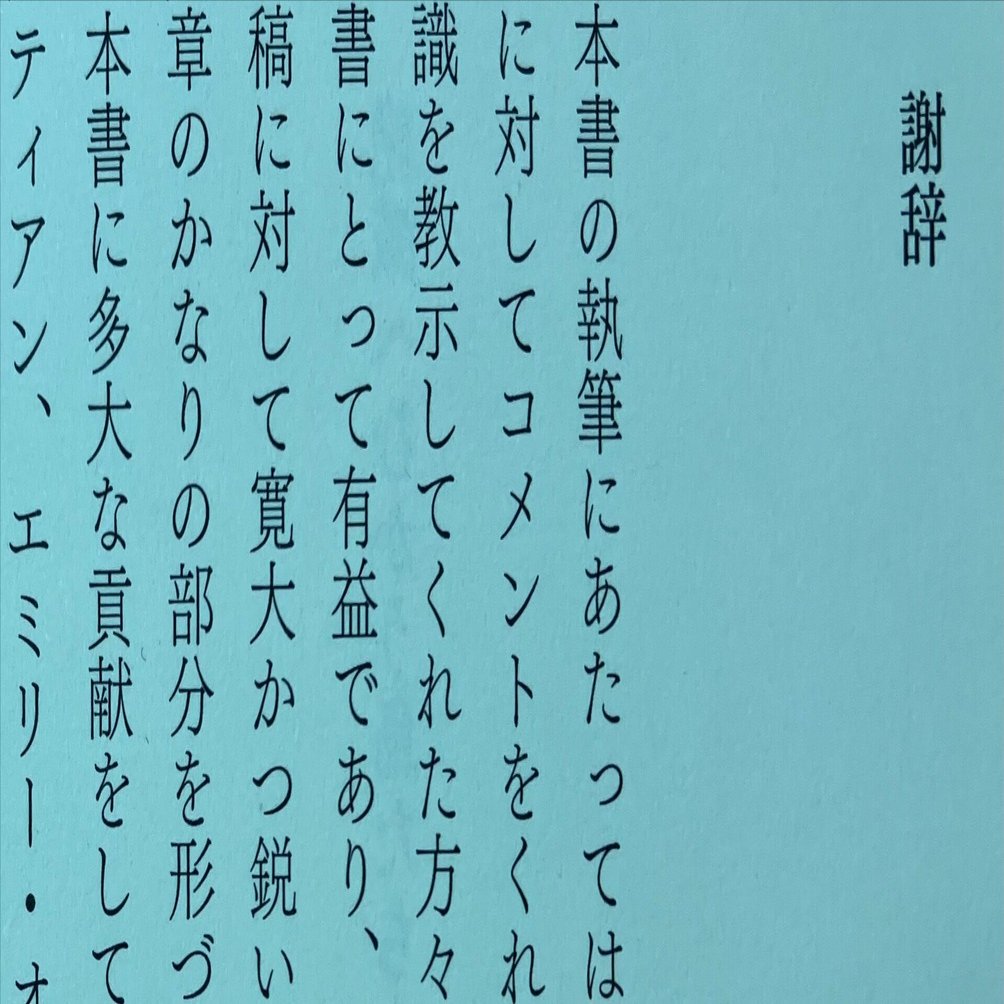 謝辞
本書の執筆にあたっては
に対してコメントをくれ
識を教示してくれた方々
書にとって有益であり、
稿に対して寛大かつ鋭い
章のかなりの部分を形づ
本書に多大な貢献をして
ティアン、エミリー・オ